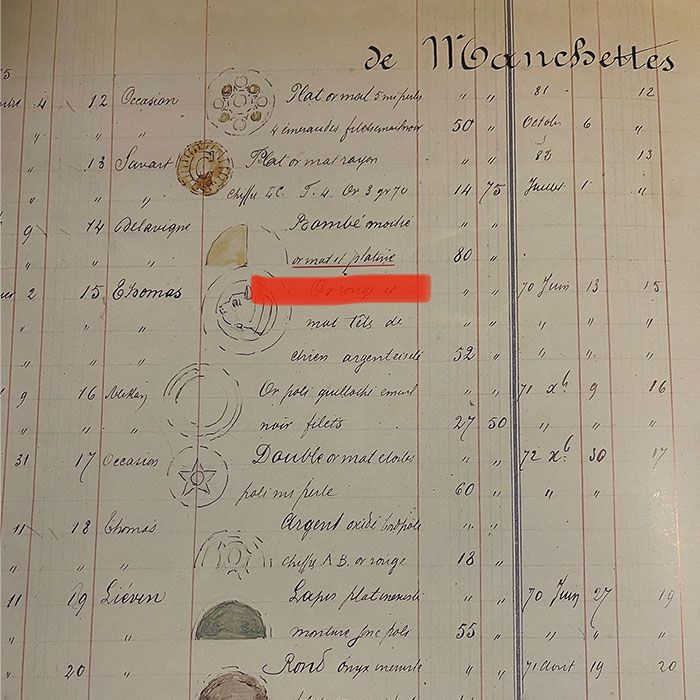 de Manchettes
5
4 12 Occasion Plat or mat 5 mi perles " " 81 12
" " " 4 émeraudes filets émail noir 50 " Octobre 6 "
13 Savart Plat or mat rayon " " 83 13
" " " chiffre 4C. T. 4. Or 3 gr 70 14 75 Juillet 1 "
9 14 Delavigne Bombé moitié " "
" " " or mat et platine 80 "
2 15 Thomas Or rouge et " " 70 Juin 13 15
" " " mat têts de " " " " "
" " " chien argent ciselé 52 " " " "
9 16 Or poli guilloché email " " 71 Xb. 9 16
" " " noir filets 27 50 " " "
31 17 Occasion Double or mat etoiles " " 72 Xb. 30 17
" " " poli mi perle 60 " " "
11 18 Thomas Argent oxidé bord poli " "
" " " chiffre A B. or rouge 18 "
11 19 Liéven Lapis plat incrusté " " 70 Juin 27 19
" " monture jonc poli 55 " " " "
" 20 Rond onyx incrusté " " 71 Aout 19 20